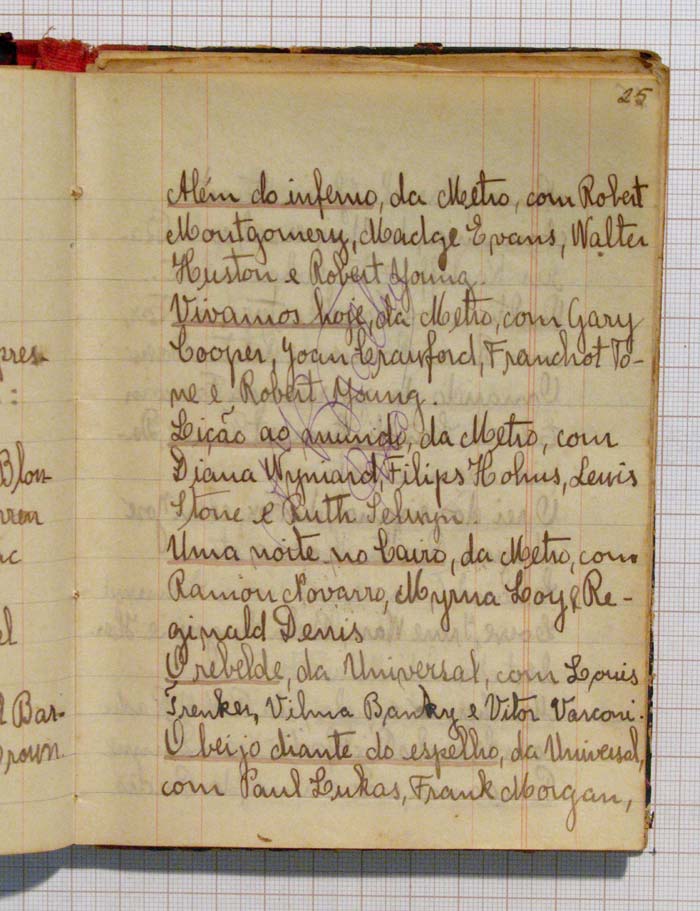 25
Além do inferno, da Metro, com Robert
Montgomery, Madge Evans, Walter
Huston e Robert Young.
Vivamos hoje, da Metro, com Gary
Cooper, Joan Crawford, Franchot To-
ne e Robert Young.
Lição ao mundo, da Metro, com
Diana Wynard, Filips Holms, Lewis
Stone e Ruth Selwyn.
Uma noite no Cairo, da Metro, com
Ramon Novarro, Myrna Loy e Re-
ginald Denis
O rebelde, da Universal, com Louis
Trenker, Vilma Banky e Vitor Varconi.
O beijo diante do espelho, da Universal,
com Paul Lukas, Frank Morgan,
pres-
:
Blon-
rren
el
Bar-
rown.